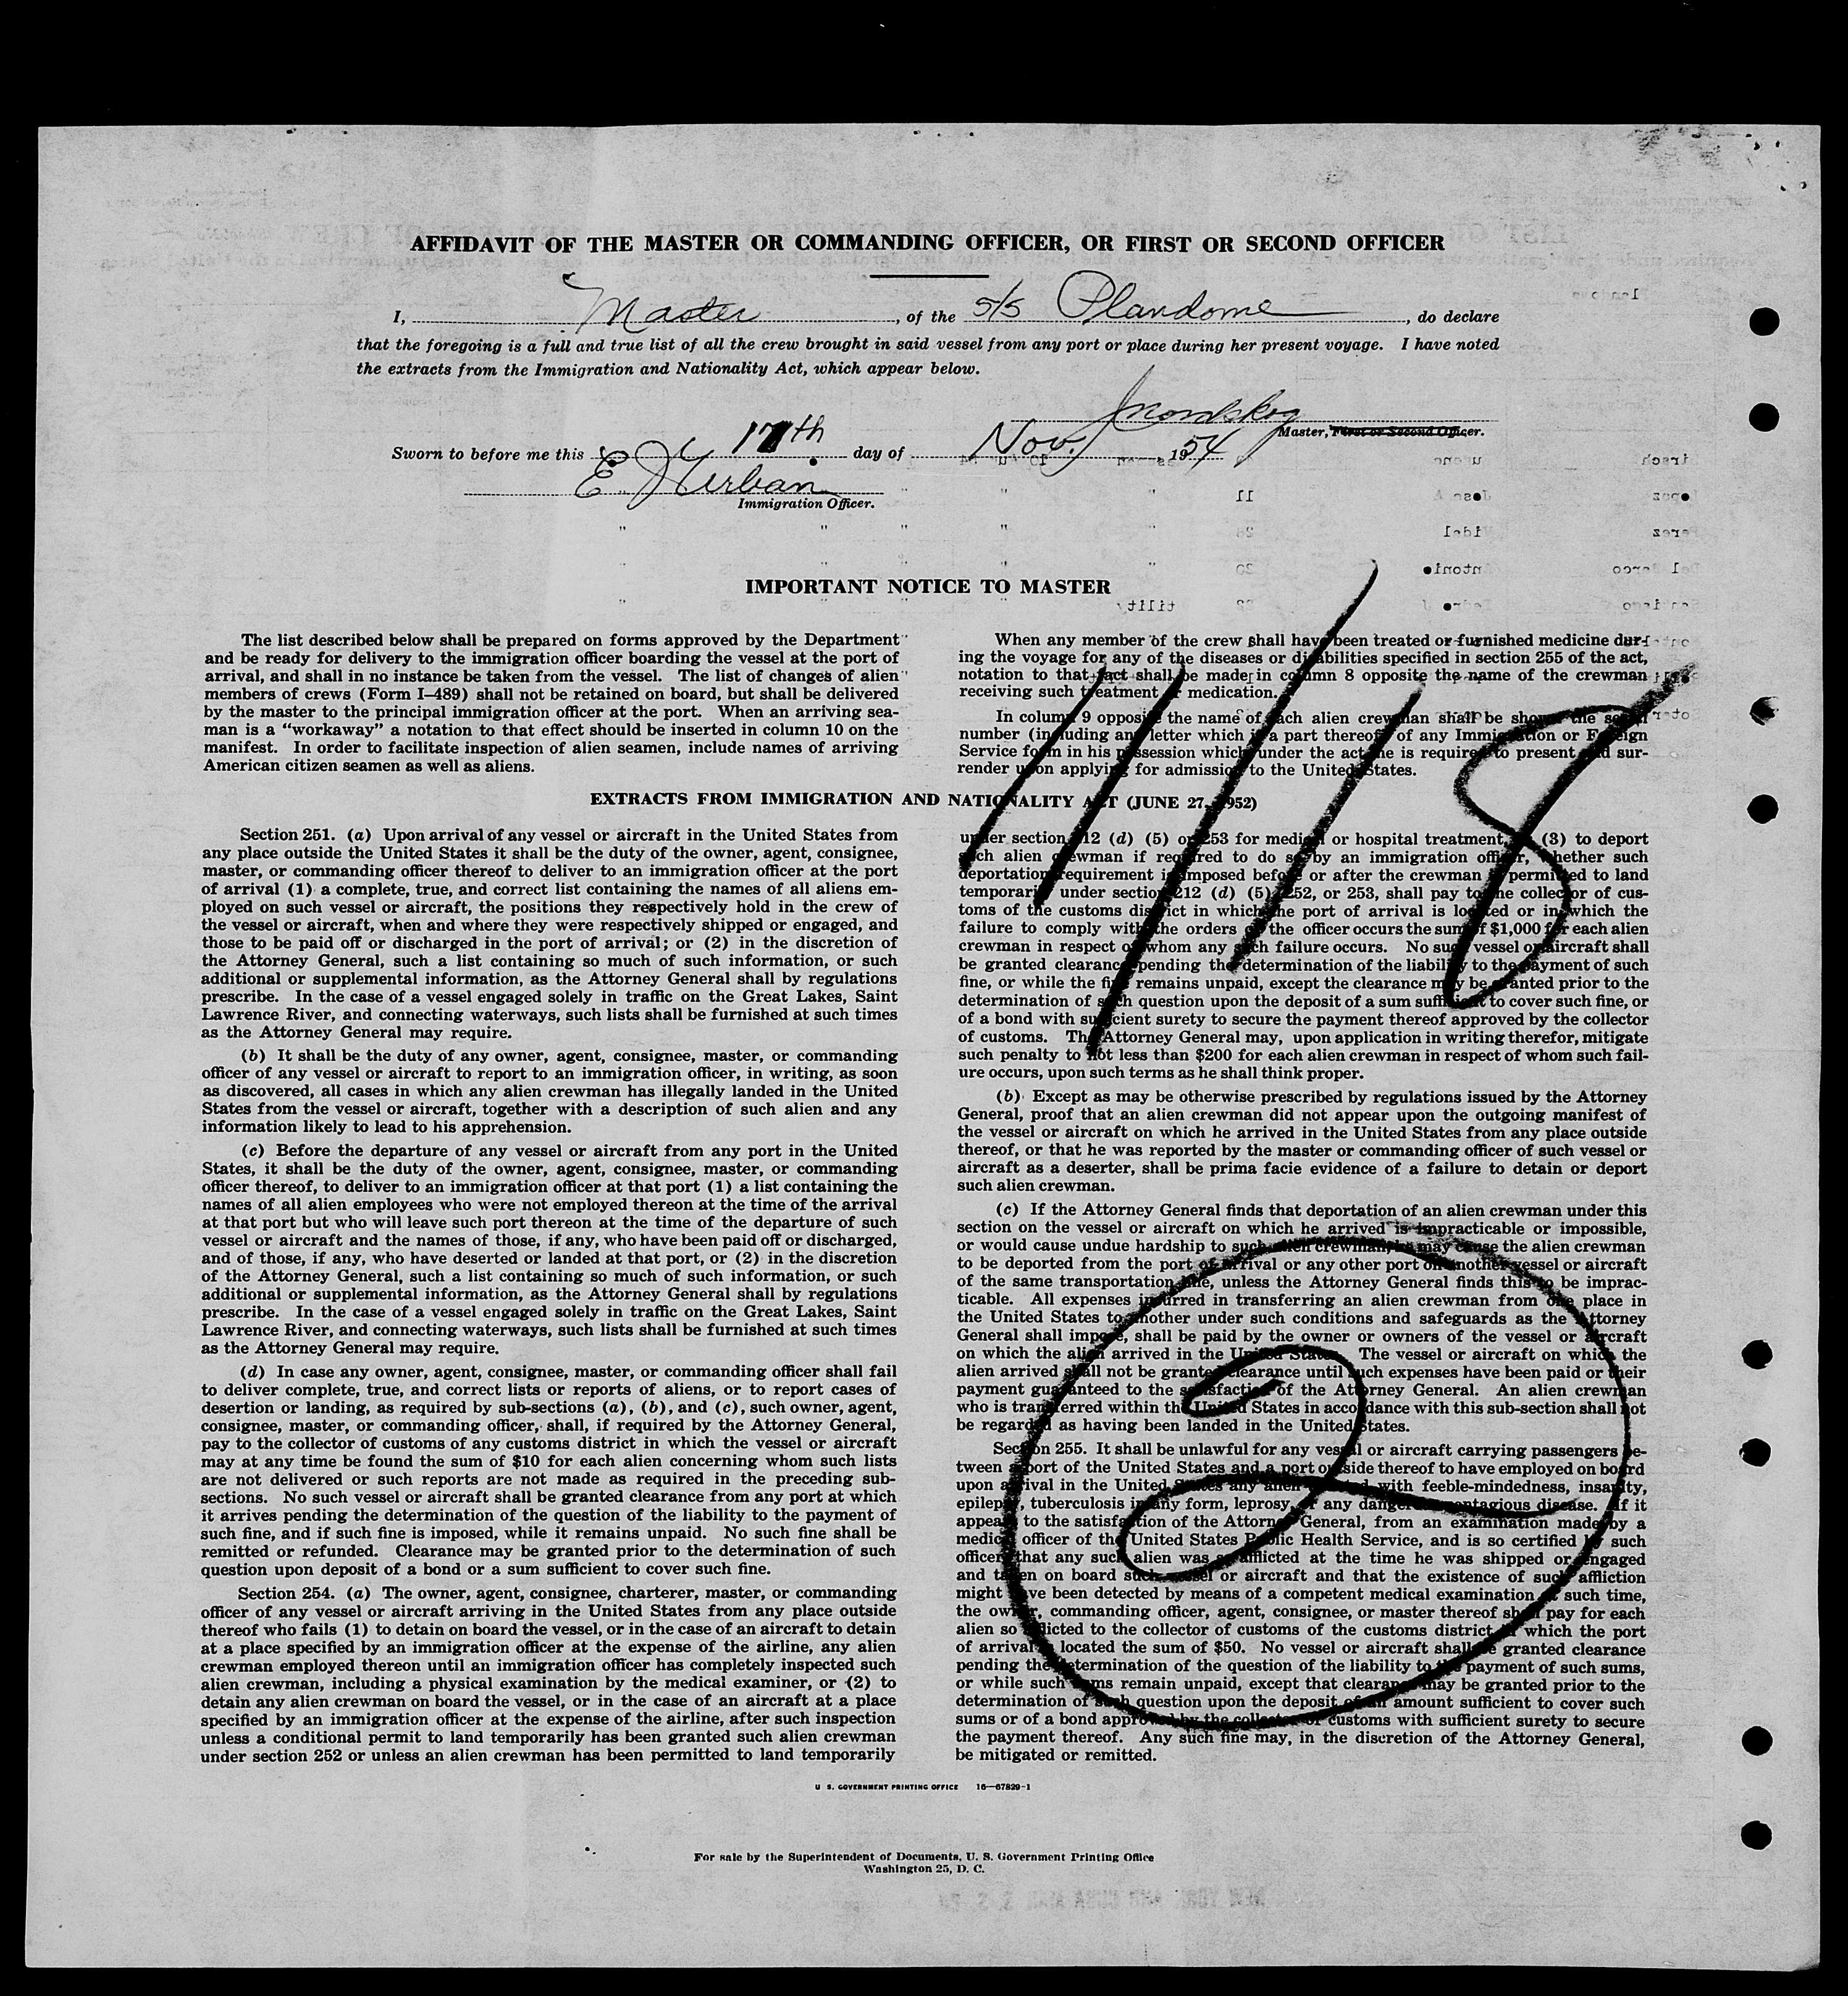 AFFIDAVIT OF THE MASTER OR COMMANDING OFFICER, OR FIRST OR SECOND OFFICER
I, Master, of the S/S Plandome, do declare
that the foregoing is a full and true list of all the crew brought in said vessel from any port or place during her present voyage. I have noted
the extracts from the Immigration and Nationality Act, which appear below.
Master, First or Second Officer.
Sworn to before me this 17th day of Nov. 1954
E J Urban
Immigration Officer.
IMPORTANT NOTICE TO MASTER
The list described below shall be prepared on forms approved by the Department
and be ready for delivery to the immigration officer boarding the vessel at the port of
arrival, and shall in no instance be taken from the vessel. The list of changes of alien
members of crews (Form I–489) shall not be retained on board, but shall be delivered
by the master to the principal immigration officer at the port. When an arriving sea-
man is a “workaway” a notation to that effect should be inserted in column 10 on the
manifest. In order to facilitate inspection of alien seamen, include names of arriving
American citizen seamen as well as aliens.
When any member of the crew shall have been treated or furnished medicine dur-
ing the voyage for any of the diseases or disabilities specified in section 255 of the act,
notation to that fact shall be made in column 8 opposite the name of the crewman
receiving such treatment or medication.
In column 9 opposite the name of each alien crewman shall be shown the serial
number (including any letter which is a part thereof) of any Immigration or Foreign
Service form in his possession which under the act he is required to present and sur-
render upon applying for admission to the United States.
11/18
EXTRACTS FROM IMMIGRATION AND NATIONALITY ACT (JUNE 27, 1952)
Section 251. (a) Upon arrival of any vessel or aircraft in the United States from
any place outside the United States it shall be the duty of the owner, agent, consignee,
master, or commanding officer thereof to deliver to an immigration officer at the port
of arrival (1) a complete, true, and correct list containing the names of all aliens em-
ployed on such vessel or aircraft, the positions they respectively hold in the crew of
the vessel or aircraft, when and where they were respectively shipped or engaged, and
those to be paid off or discharged in the port of arrival; or (2) in the discretion of
the Attorney General, such a list containing so much of such information, or such
additional or supplemental information, as the Attorney General shall by regulations
prescribe. In the case of a vessel engaged solely in traffic on the Great Lakes, Saint
Lawrence River, and connecting waterways, such lists shall be furnished at such times
as the Attorney General may require.
(b) It shall be the duty of any owner, agent, consignee, master, or commanding
officer of any vessel or aircraft to report to an immigration officer, in writing, as soon
as discovered, all cases in which any alien crewman has illegally landed in the United
States from the vessel or aircraft, together with a description of such alien and any
information likely to lead to his apprehension.
(c) Before the departure of any vessel or aircraft from any port in the United
States, it shall be the duty of the owner, agent, consignee, master, or commanding
officer thereof, to deliver to an immigration officer at that port (1) a list containing the
names of all alien employees who were not employed thereon at the time of the arrival
at that port but who will leave such port thereon at the time of the departure of such
vessel or aircraft and the names of those, if any, who have been paid off or discharged,
and of those, if any, who have deserted or landed at that port, or (2) in the discretion
of the Attorney General, such a list containing so much of such information, or such
additional or supplemental information, as the Attorney General shall by regulations
prescribe. In the case of a vessel engaged solely in traffic on the Great Lakes, Saint
Lawrence River, and connecting waterways, such lists shall be furnished at such times
as the Attorney General may require.
(d) In case any owner, agent, consignee, master, or commanding officer shall fail
to deliver complete, true, and correct lists or reports of aliens, or to report cases of
desertion or landing, as required by sub-sections (a), (b), and (c), such owner, agent,
consignee, master, or commanding officer, shall, if required by the Attorney General,
pay to the collector of customs of any customs district in which the vessel or aircraft
may at any time be found the sum of $10 for each alien concerning whom such lists
are not delivered or such reports are not made as required in the preceding sub-
sections. No such vessel or aircraft shall be granted clearance from any port at which
it arrives pending the determination of the question of the liability to the payment of
such fine, and if such fine is imposed, while it remains unpaid. No such fine shall be
remitted or refunded. Clearance may be granted prior to the determination of such
question upon deposit of a bond or a sum sufficient to cover such fine.
Section 254. (a) The owner, agent, consignee, charterer, master, or commanding
officer of any vessel or aircraft arriving in the United States from any place outside
thereof who fails (1) to detain on board the vessel, or in the case of an aircraft to detain
at a place specified by an immigration officer at the expense of the airline, any alien
crewman employed thereon until an immigration officer has completely inspected such
alien crewman, including a physical examination by the medical examiner, or (2) to
detain any alien crewman on board the vessel, or in the case of an aircraft at a place
specified by an immigration officer at the expense of the airline, after such inspection
unless a conditional permit to land temporarily has been granted such alien crewman
under section 252 or unless an alien crewman has been permitted to land temporarily
under section 212 (d) (5) or 253 for medical or hospital treatment, or (3) to deport
such alien crewman if required to do so by an immigration officer, whether such
deportation requirement is imposed before or after the crewman is permitted to land
temporarily under section 212 (d) (5), 252, or 253, shall pay to the collector of cus-
toms of the customs district in which the port of arrival is located or in which the
failure to comply with the orders of the officer occurs the sum of $1,000 for each alien
crewman in respect of whom any such failure occurs. No such vessel or aircraft shall
be granted clearance pending the determination of the liability to the payment of such
fine, or while the fine remains unpaid, except the clearance may be granted prior to the
determination of such question upon the deposit of a sum sufficient to cover such fine, or
of a bond with sufficient surety to secure the payment thereof approved by the collector
of customs. The Attorney General may, upon application in writing therefor, mitigate
such penalty to not less than $200 for each alien crewman in respect of whom such fail-
ure occurs, upon such terms as he shall think proper.
(b) Except as may be otherwise prescribed by regulations issued by the Attorney
General, proof that an alien crewman did not appear upon the outgoing manifest of
the vessel or aircraft on which he arrived in the United States from any place outside
thereof, or that he was reported by the master or commanding officer of such vessel or
aircraft as a deserter, shall be prima facie evidence of a failure to detain or deport
such alien crewman.
(c) If the Attorney General finds that deportation of an alien crewman under this
section on the vessel or aircraft on which he arrived is impracticable or impossible,
or would cause undue hardship to such alien crewman, he may cause the alien crewman
to be deported from the port of arrival or any other port on another vessel or aircraft
of the same transportation line, unless the Attorney General finds this to be imprac-
ticable. All expenses incurred in transferring an alien crewman from one place in
the United States to another under such conditions and safeguards as the Attorney
General shall impose, shall be paid by the owner or owners of the vessel or aircraft
on which the alien arrived in the United States. The vessel or aircraft on which the
alien arrived shall not be granted clearance until such expenses have been paid or their
payment guaranteed to the satisfaction of the Attorney General. An alien crewman
who is transferred within the United States in accordance with this sub-section shall not
be regarded as having been landed in the United States.
2
Section 255. It shall be unlawful for any vessel or aircraft carrying passengers be-
tween a port of the United States and a port outside thereof to have employed on board
upon arrival in the United States any alien afflicted with feeble-mindedness, insanity,
epilepsy, tuberculosis in any form, leprosy, or any dangerous contagious disease. If it
appears to the satisfaction of the Attorney General, from an examination made by a
medical officer of the United States Public Health Service, and is so certified by such
officer, that any such alien was so afflicted at the time he was shipped or engaged
and taken on board such vessel or aircraft and that the existence of such affliction
might have been detected by means of a competent medical examination at such time,
the owner, commanding officer, agent, consignee, or master thereof shall pay for each
alien so afflicted to the collector of customs of the customs district in which the port
of arrival is located the sum of $50. No vessel or aircraft shall be granted clearance
pending the determination of the question of the liability to the payment of such sums,
or while such sums remain unpaid, except that clearance may be granted prior to the
determination of such question upon the deposit of an amount sufficient to cover such
sums or of a bond approved by the collector of customs with sufficient surety to secure
the payment thereof. Any such fine may, in the discretion of the Attorney General,
be mitigated or remitted.
U. S. GOVERNMENT PRINTING OFFICE 16—67829-1
For sale by the Superintendent of Documents, U. S. Government Printing Office
Washington 25, D. C.